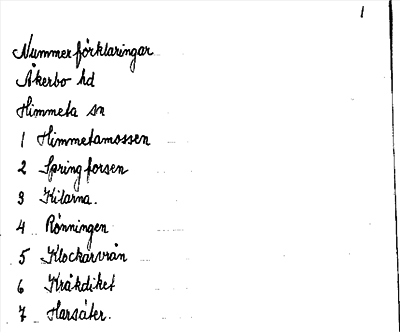 1
Nummerförklaringar
Åkerbo hd
Himmeta sn
1 Himmetamossen
2 Springforsen
3 Kilarna.
4 Rönningen
5 Klockarvrån
6 Kråkdiket
7 Harsäter.